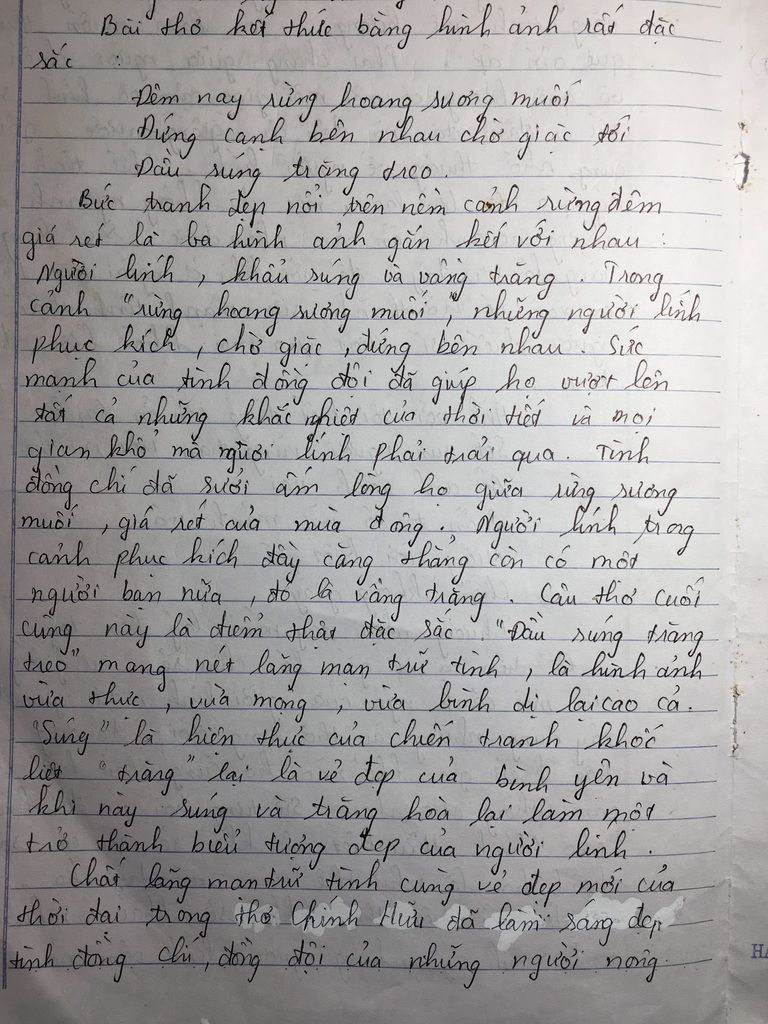 Bài thơ kết thúc bằng hình ảnh rất đặc
sắc :
Đêm nay rừng hoang sương muối
Đứng cạnh bên nhau chờ giặc tới
Đầu súng trăng treo.
Bức tranh đẹp nổi trên nềm cảnh rừng đêm
giá rét là ba hình ảnh gắn kết với nhau :
Người lính, khẩu súng và vầng trăng. Trong
cảnh "rừng hoang sương muối", những người lính
phục kích, chờ giặc, đứng bên nhau. Sức
mạnh của tình đồng đội đã giúp họ vượt lên
tất cả những khắc nghiệt của thời tiết và mọi
gian khổ mà người lính phải trải qua. Tình
đồng chí đã sưởi ấm lòng họ giữa rừng sương
muối, giá rét của mùa đông. Người lính trong
cảnh phục kích đầy căng thẳng còn có một
người bạn nữa, đó là vầng trăng. Câu thơ cuối
cùng này là điểm thật đặc sắc "Đầu súng trăng
treo" mang nét lãng mạn trữ tình, là hình ảnh
vừa thực, vừa mộng, vừa bình dị lại cao cả.
"Súng" là hiện thực của chiến tranh khốc
liệt "trăng" lại là vẻ đẹp của bình yên và
khi này súng và trăng hoà lại làm một
trở thành biểu tượng đẹp của người lính.
Chất lãng mạn trữ tình cùng vẻ đẹp mới của
thời đại trong thơ Chính Hữu đã làm sáng đẹp
tình đồng chí, đồng đội của những người nông
HA